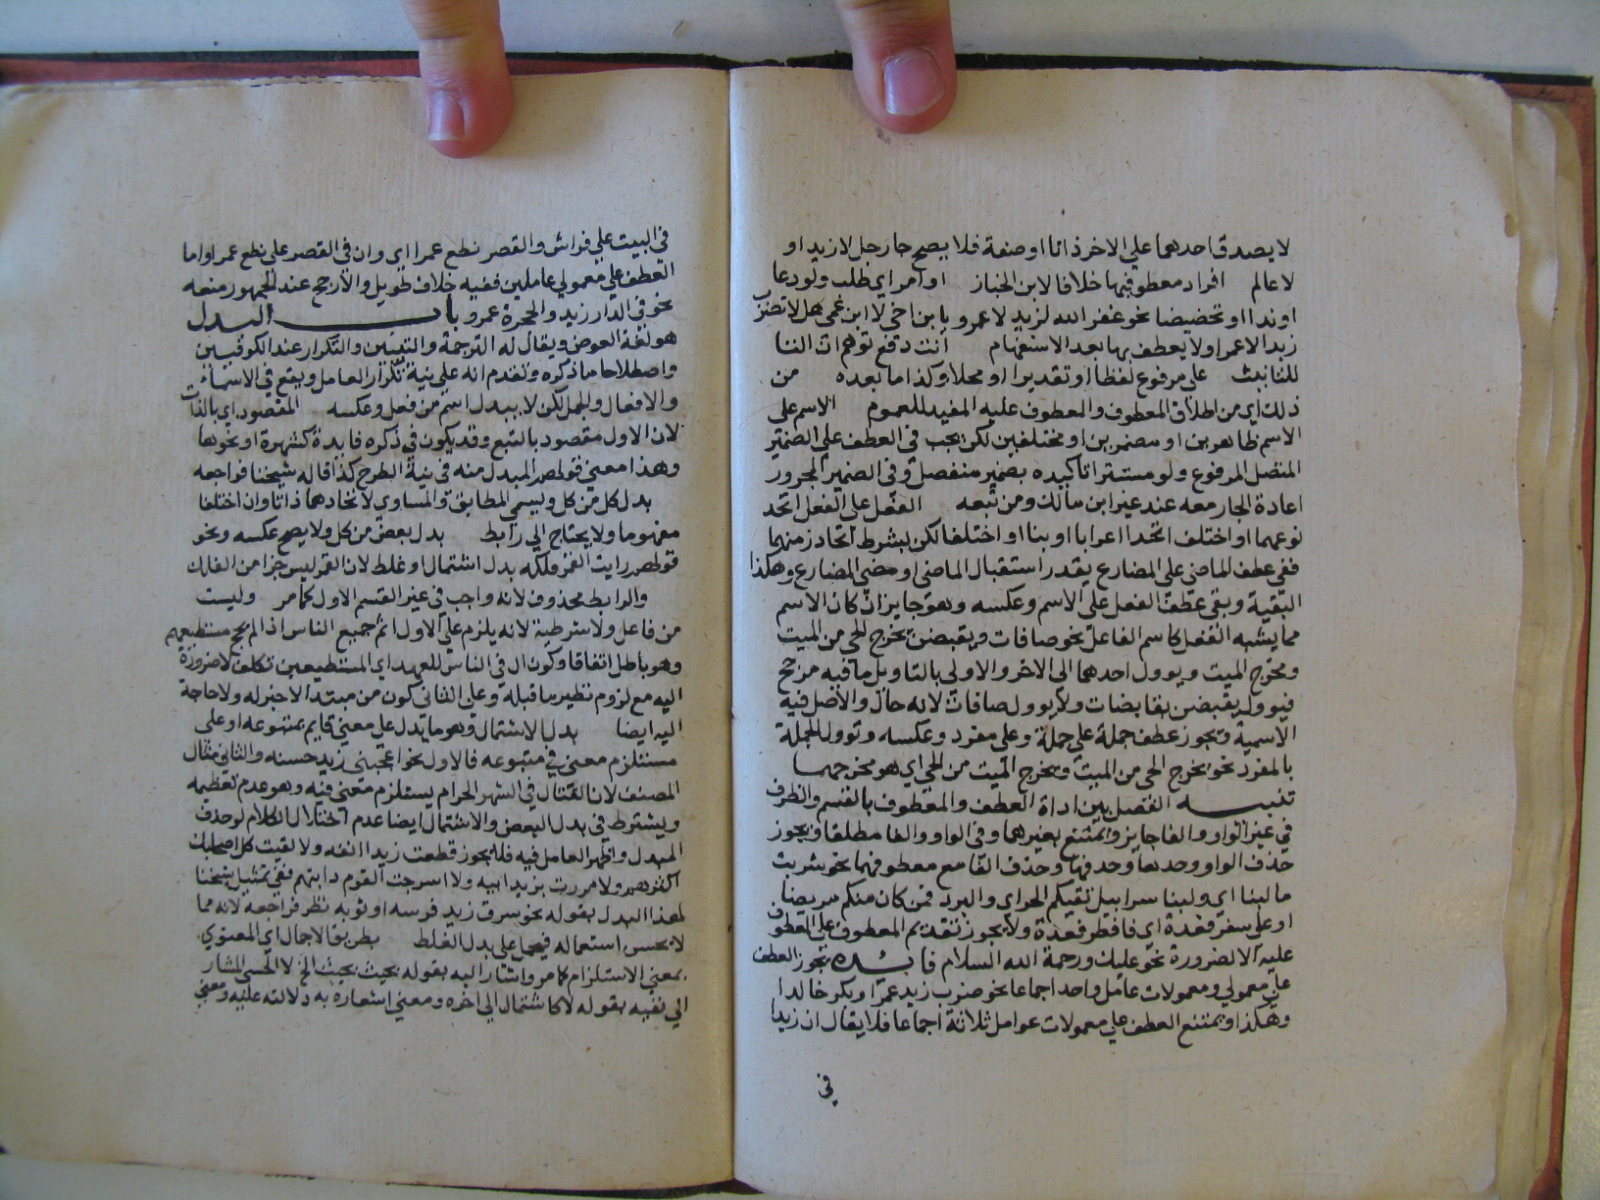 لا يصدق احدهما علي الاخر ذاتا او صفة فلا يصح جا رجل لا زيد او
لا عالم افراد معطوفيها خلافا لابن الخباز او امر اي طلب ولو دعا
او ندا او تحضيضا نحو غفر الله لزيد لا عمرو يا بن اخي لا ابن عمي هلا تضرب
زيدا لا عمرا ولا يعطف بها بعد الاستفهام انت دفع توهم ان التا
للتانيث علي مرفوع لفظا او تقديرا او محلا وكذا ما بعده من
ذلك اي من اطلاق المعطوف والمعطوف عليه المفيد للعموم الاسم علي
الاسم ظاهرين او مضمرين او مختلفين لكن يجب في العطف علي الضمير
المتصل المرفوع ولو مستترا تاكيده بضمير منفصل وفي الضمير المجرور
اعادة الجار معه عند غير ابن مالك ومن تبعه الفعل علي الفعل اتحد
نوعهما او اختلف اتحدا اعرابا او بنا او اختلفا لكن بشرط اتحاد زمنهما
ففي عطف الماضي علي المضارع يقدر استقبال الماضي او مضي المضارع وهكذا
البقية وبقي عطف الفعل علي الاسم وعكسه وهو جايز ان كان الاسم
مما يشبه الفعل كاسم الفاعل نحو صافات ويقبضن يخرج الحي من الميت
ومخرج الميت ويوول احدهما الي الاخر والاولي بالتاويل ما فيه مرجح
فيوول يقبضن بقابضات ولا يوول صافات لانه حال والاصل فيه
الاسمية ويجوز عطف جملة علي جملة وعلي مفرد وعكسه وتوول الجملة
بالمفرد نحو يخرج الحي من الميت ومخرج الميت من الحي اي هو مخرجهما
تنبيه الفصل بين اداة العطف والمعطوف بالقسم والظرف
في غير الواو والفا جايز ويمتنع بغيرهما وفي الواو والفا مطلقا ويجوز
حذف الواو وحدها وحذفها وحذف الفا مع معطوفهما نحو شربت
ما لبنا اي ولبنا سرابيل تقيكم الحر اي والبرد فمن كان منكم مريضا
او علي سفر فعدة اي فافطر فعدة ولا يجوز تقديم المعطوف علي المعطوف
عليه الا لضرورة نحو عليك ورحمة الله السلام فايده يجوز العطف
علي معمولي ومعمولات عامل واحد اجماعا نحو ضرب زيد عمرا وبكر خالدا
وهكذا ويمتنع العطف علي معمولات عوامل ثلاثة اجماعا فلا يقال ان زيدا
في
في البيت علي فراش والقصر نطع عمرا اي وان في القصر علي نطع عمرا واما
العطف علي معمولي عاملين ففيه خلاف طويل والارجح عند الجمهور منعه
نحو في الدار زيد والحجرة عمرو باب البدل
هو لغة العوض ويقال له الترجمة والتبيين والتكرار عند الكوفيين
واصطلاحا ما ذكره وتقدم انه علي نية تكرار العامل ويقع في الاسماء
والافعال والجمل لكن لا يبدل اسم من فعل وعكسه المقصود اي بالذات
لان الاول مقصود بالتبع وقد يكون في ذكره فايدة كشهرة او نحوها
وهذا معني قولهم المبدل منه في نية الطرح كذا قاله شيخنا فراجعه
بدل كل من كل ويسمي المطابق والمساوي لاتحادهما ذاتا وان اختلفا
مفهوما ولا يحتاج الي رابط بدل بعض من كل ولا يصح عكسه ونحو
قولهم رايت القمر فلكه بدل اشتمال او غلط لان القمر ليس جزا من الفلك
والرابط محذوف لانه واجب في غير القسم الاول كما مر وليست
من فاعل ولا شرطية لانه يلزم علي الاول اثم جميع الناس اذا لم يحج مستطيعهم
وهو باطل اتفاقا وكون ال في الناس للعهد اي المستطيعين تكلف لا ضرورة
اليه مع لزوم نظير ما قبله وعلي الثاني كون من مبتدا لا خبر له ولا حاجة
اليه ايضا بدل الاشتمال وهو ما يدل علي معني قايم بمتبوعه او علي
مستلزم معني في متبوعه فالاول نحو اعجبني زيد حسنه والثاني مثال
المصنف لان القتال في الشهر الحرام يستلزم معني فيه وهو عدم تعظيمه
ويشترط في بدل البعض والاشتمال ايضا عدم اختلال الكلام لو حذف
المبدل واظهر العامل فيه فلا يجوز قطعت زيدا انفه ولا لقيت كل اصحابك
اكثرهم ولا مررت بزيد ابيه ولا اسرجت القوم دابتهم ففي تمثيل شيخنا
لهذا البدل بقوله نحو سرق زيد فرسه او ثوبه نظر فراجعه لانه مما
لا يحسن استعماله فيحمل علي بدل الغلط بطريق الاجمال اي المعنوي
بمعني الاستلزام كما مر واشار اليه بقوله بحيث بحيث الخ لا الحسي المشار
الي نفيه بقوله لا كاشتمال الي اخره ومعني اشعاره به دلالته عليه ومعني